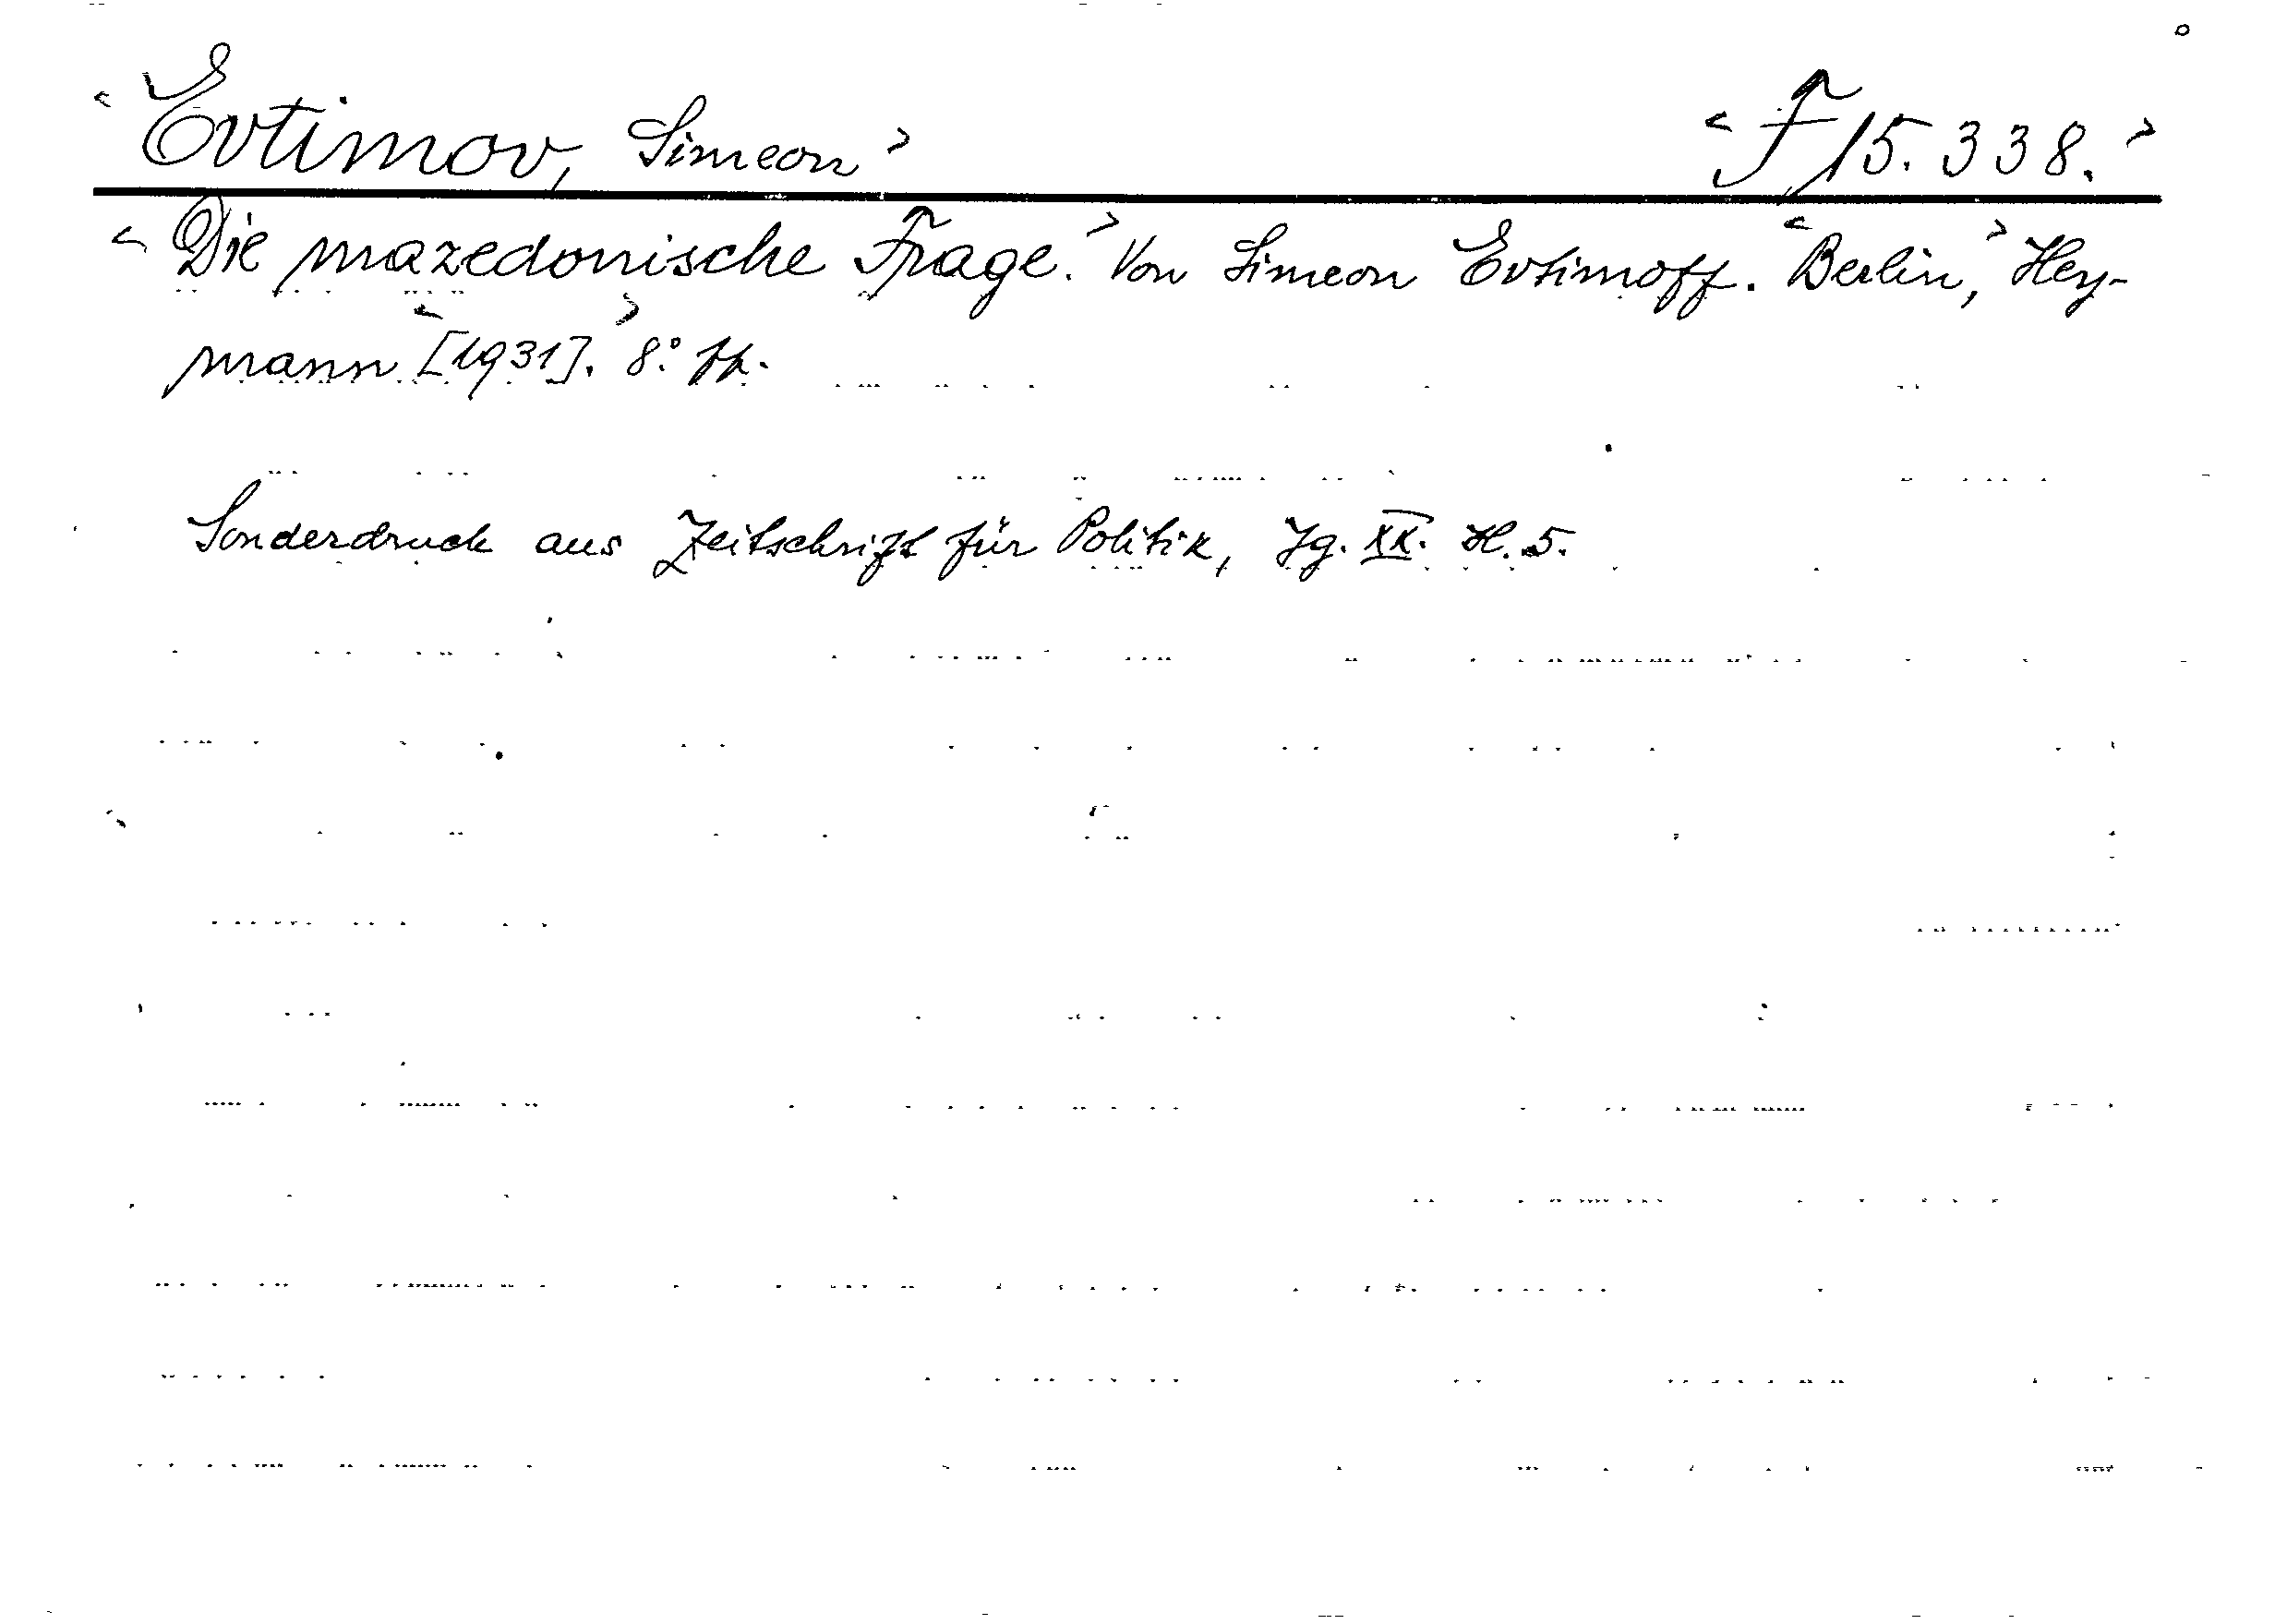 <Evtimov, Simeon> <F 15.338.>
<Die mazedonische Frage.> Von Simeon Evtimoff. <Berlin,> Hey-
mann <[1931].> 8°
Sonderdruck aus Zeitschrift für Politik, Jg. XX. H. 5.